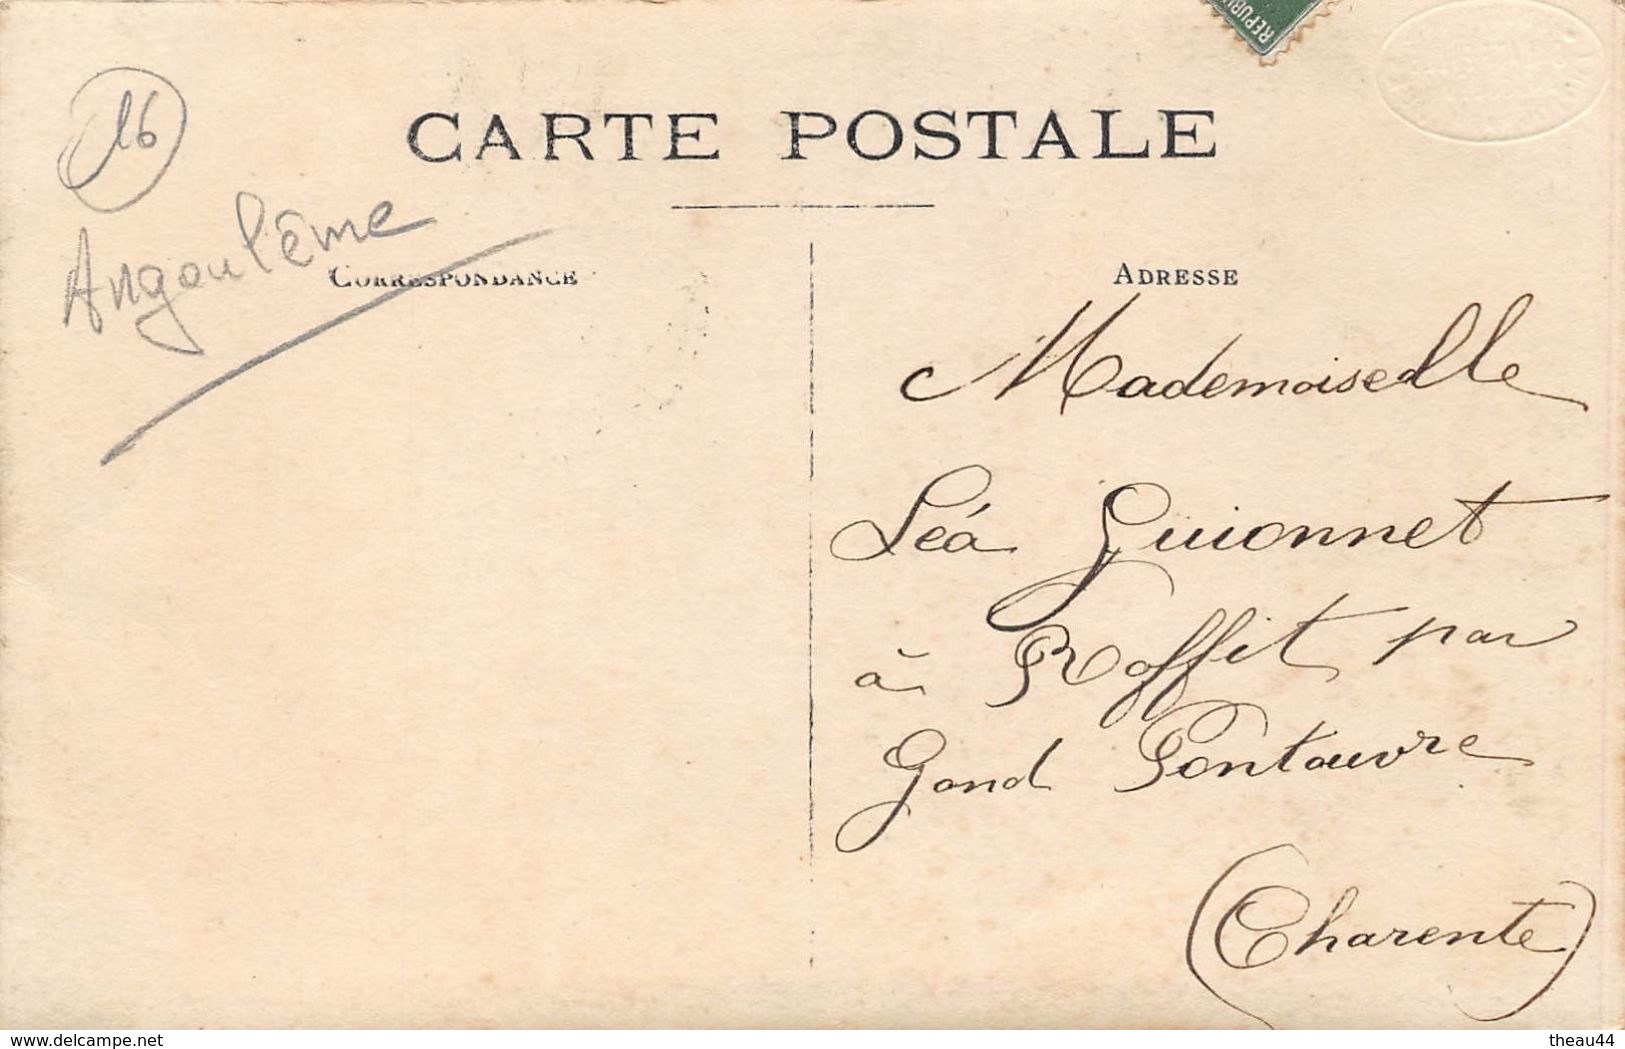 REPUB
16
CARTE POSTALE
Angoulême
CORRESPONDANCE
ADRESSE
Mademoiselle
Léa Guionnet
à Roffit par
Gond Pontouvre
(Charente)
www.delcampe.net
theau44